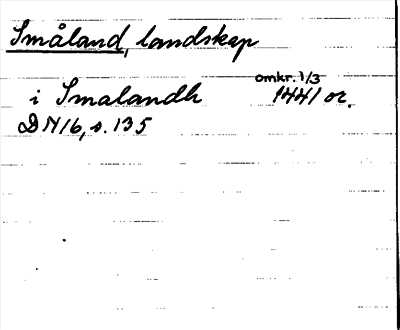 Småland, landskap
omkr. 1/3
i Smalandh 1441 or.
DN16, s. 135